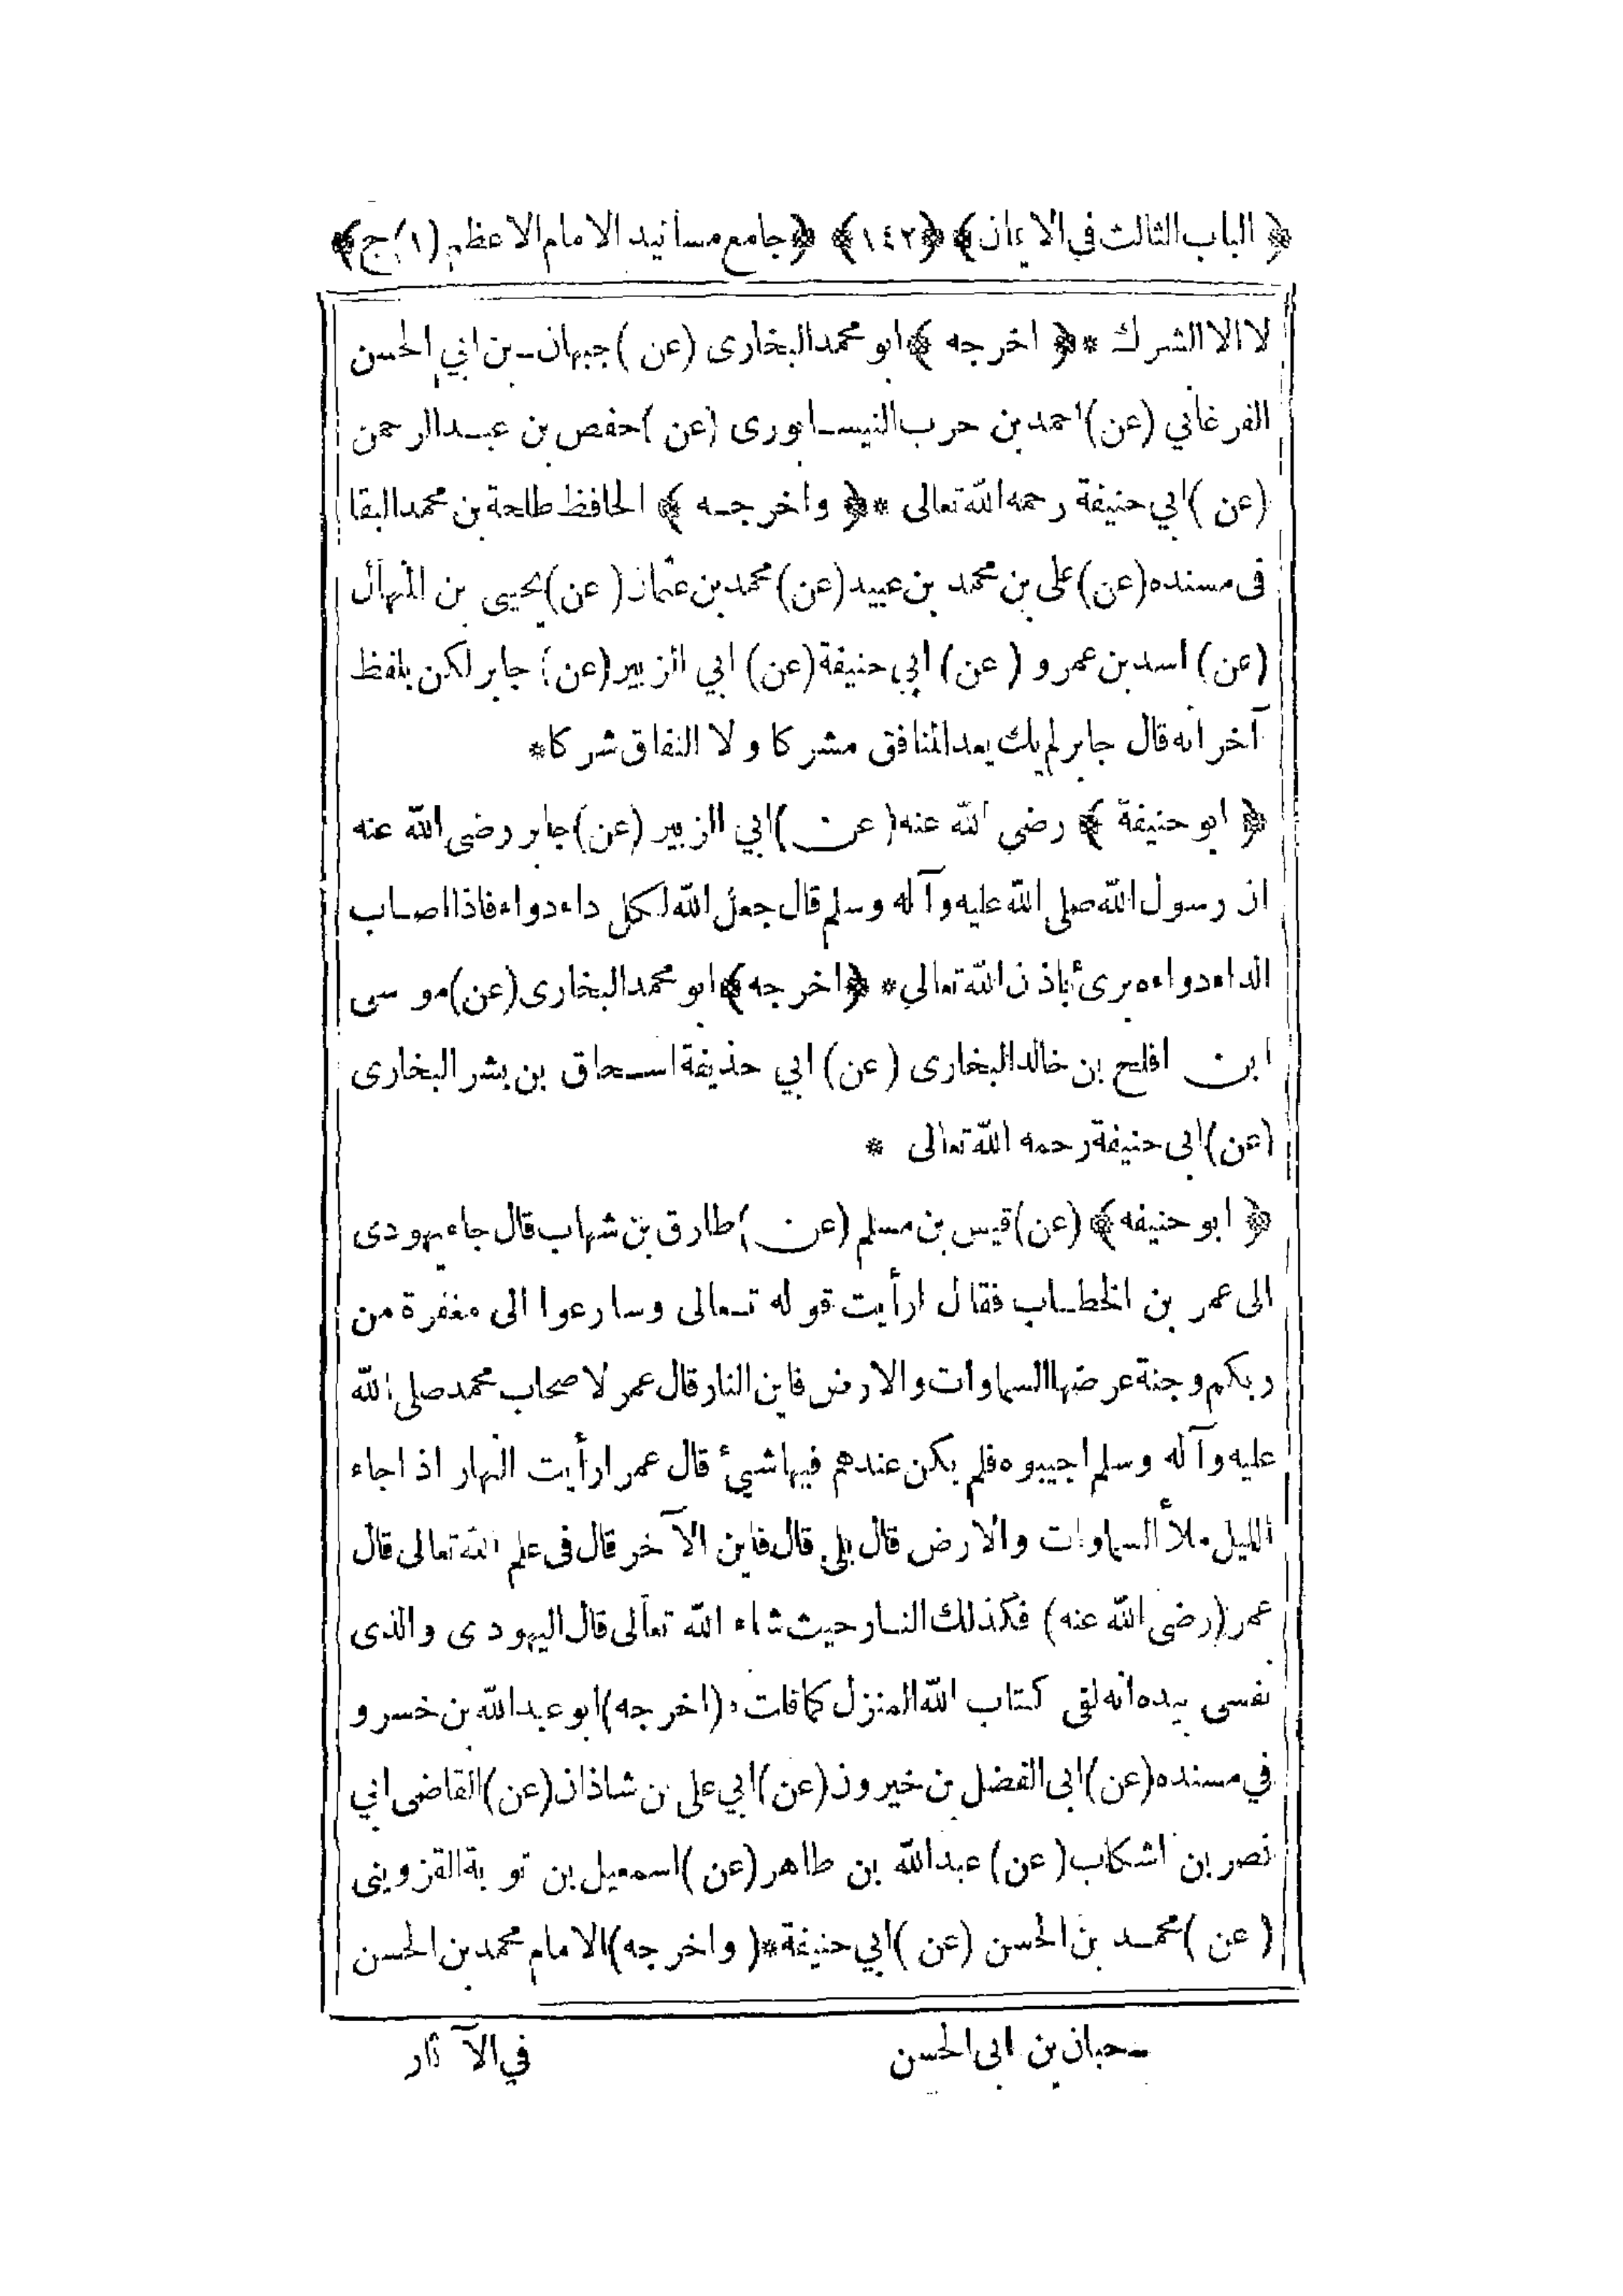 ﴿ الباب الثالث في الايمان ﴾ ﴿ ١٤٢ ﴾ ﴿ جامع مسانيد الامام الاعظم (١/ ج ﴾
لا الا الشرك * ﴿ اخرجه ﴾ ابو محمد البخارى (عن) جبهان ـ بن ابي الحسن
الفرغاني (عن) احمد بن حرب النيسابورى (عن) حفص بن عبد الرحمن
(عن) ابي حنيفة رحمه الله تعالى * ﴿ واخرجه ﴾ الحافظ طلحة بن محمد البقا
فى مسنده (عن) على بن محمد بن عبيد (عن) محمد بن عثمان (عن) يحيى بن المنهال
(عن) اسد بن عمرو (عن) ابي حنيفة (عن) ابي الزبير (عن) جابر لكن بلفظ
آخر انه قال جابر لم يك يعد المنافق مشركا ولا النفاق شركا *
﴿ ابو حنيفة ﴾ رضى الله عنه (عن) ابي الزبير (عن) جابر رضى الله عنه
ان رسول الله صلى الله عليه وآله وسلم قال جعل الله لكل داء دواء فاذا اصاب
الداء دواءه برئ باذن الله تعالى * ﴿ اخرجه ﴾ ابو محمد البخارى (عن) موسى
ابن افلح بن خالد البخارى (عن) ابي حذيفة اسحاق بن بشر البخارى
(عن) ابى حنيفة رحمه الله تعالى *
﴿ ابو حنيفه ﴾ (عن) قيس بن مسلم (عن) طارق بن شهاب قال جاء يهودى
الى عمر بن الخطاب فقال ارأيت قوله تعالى وسارعوا الى مغفرة من
ربكم وجنة عرضها السماوات والارض فاين النار قال عمر لاصحاب محمد صلى الله
عليه وآله وسلم اجيبوه فلم يكن عندهم فيها شيئ قال عمر ارأيت النهار اذا جاء
الليل ملأ السماوات والارض قال بلى قال فاين الآخر قال فى علم الله تعالى قال
عمر (رضى الله عنه) فكذلك النار حيث شاء الله تعالى قال اليهودى والذى
نفسى بيده انه لفى كتاب الله المنزل كما قلت * (اخرجه) ابو عبد الله بن خسرو
في مسنده (عن) ابى الفضل بن خيرون (عن) ابي على بن شاذان (عن) القاضى ابي
نصر بن اشكاب (عن) عبد الله بن طاهر (عن) اسمعيل بن توبة القزوينى
(عن) محمد بن الحسن (عن) ابي حنيفة * (واخرجه) الامام محمد بن الحسن
ـ حبان بن ابى الحسن
في الآثار